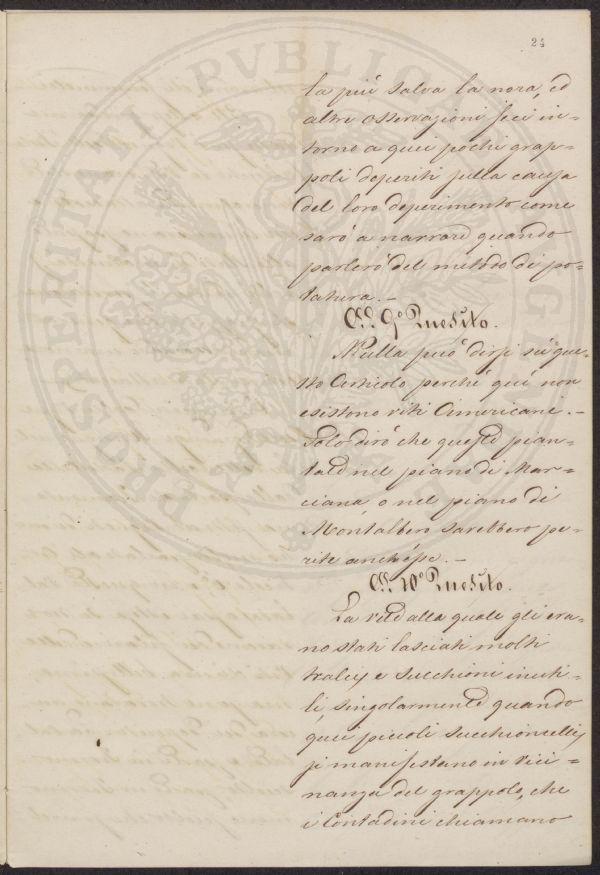 24
la più salva la nora, ed
altre osservazioni feci in=
torno a quei pochi grap=
poli deperiti sulla causa
del loro deperimento come
sarò a narrare quando
parlerò del metodo di po=
tatura. -
All. 9.° Quesito.
Nulla può dirsi sù que=
sto Articolo perchè quì non
esistono viti Americani. -
Solo dirò che queste pian=
tate nel piano di Mar=
ciana o nel piano di
Montalbero sarebbero pe=
rite anch'esse. -
All. 10.° Quesito.
La vite alla quale gli era=
no stati lasciati molti
tralcj e succhioni inuti=
li, singolarmente quando
quei piccoli succhioncellj
si manifestano in vici=
nanza del grappolo, che
i Contadini chiamano
PROSPERITATI PVBLICAE AVG